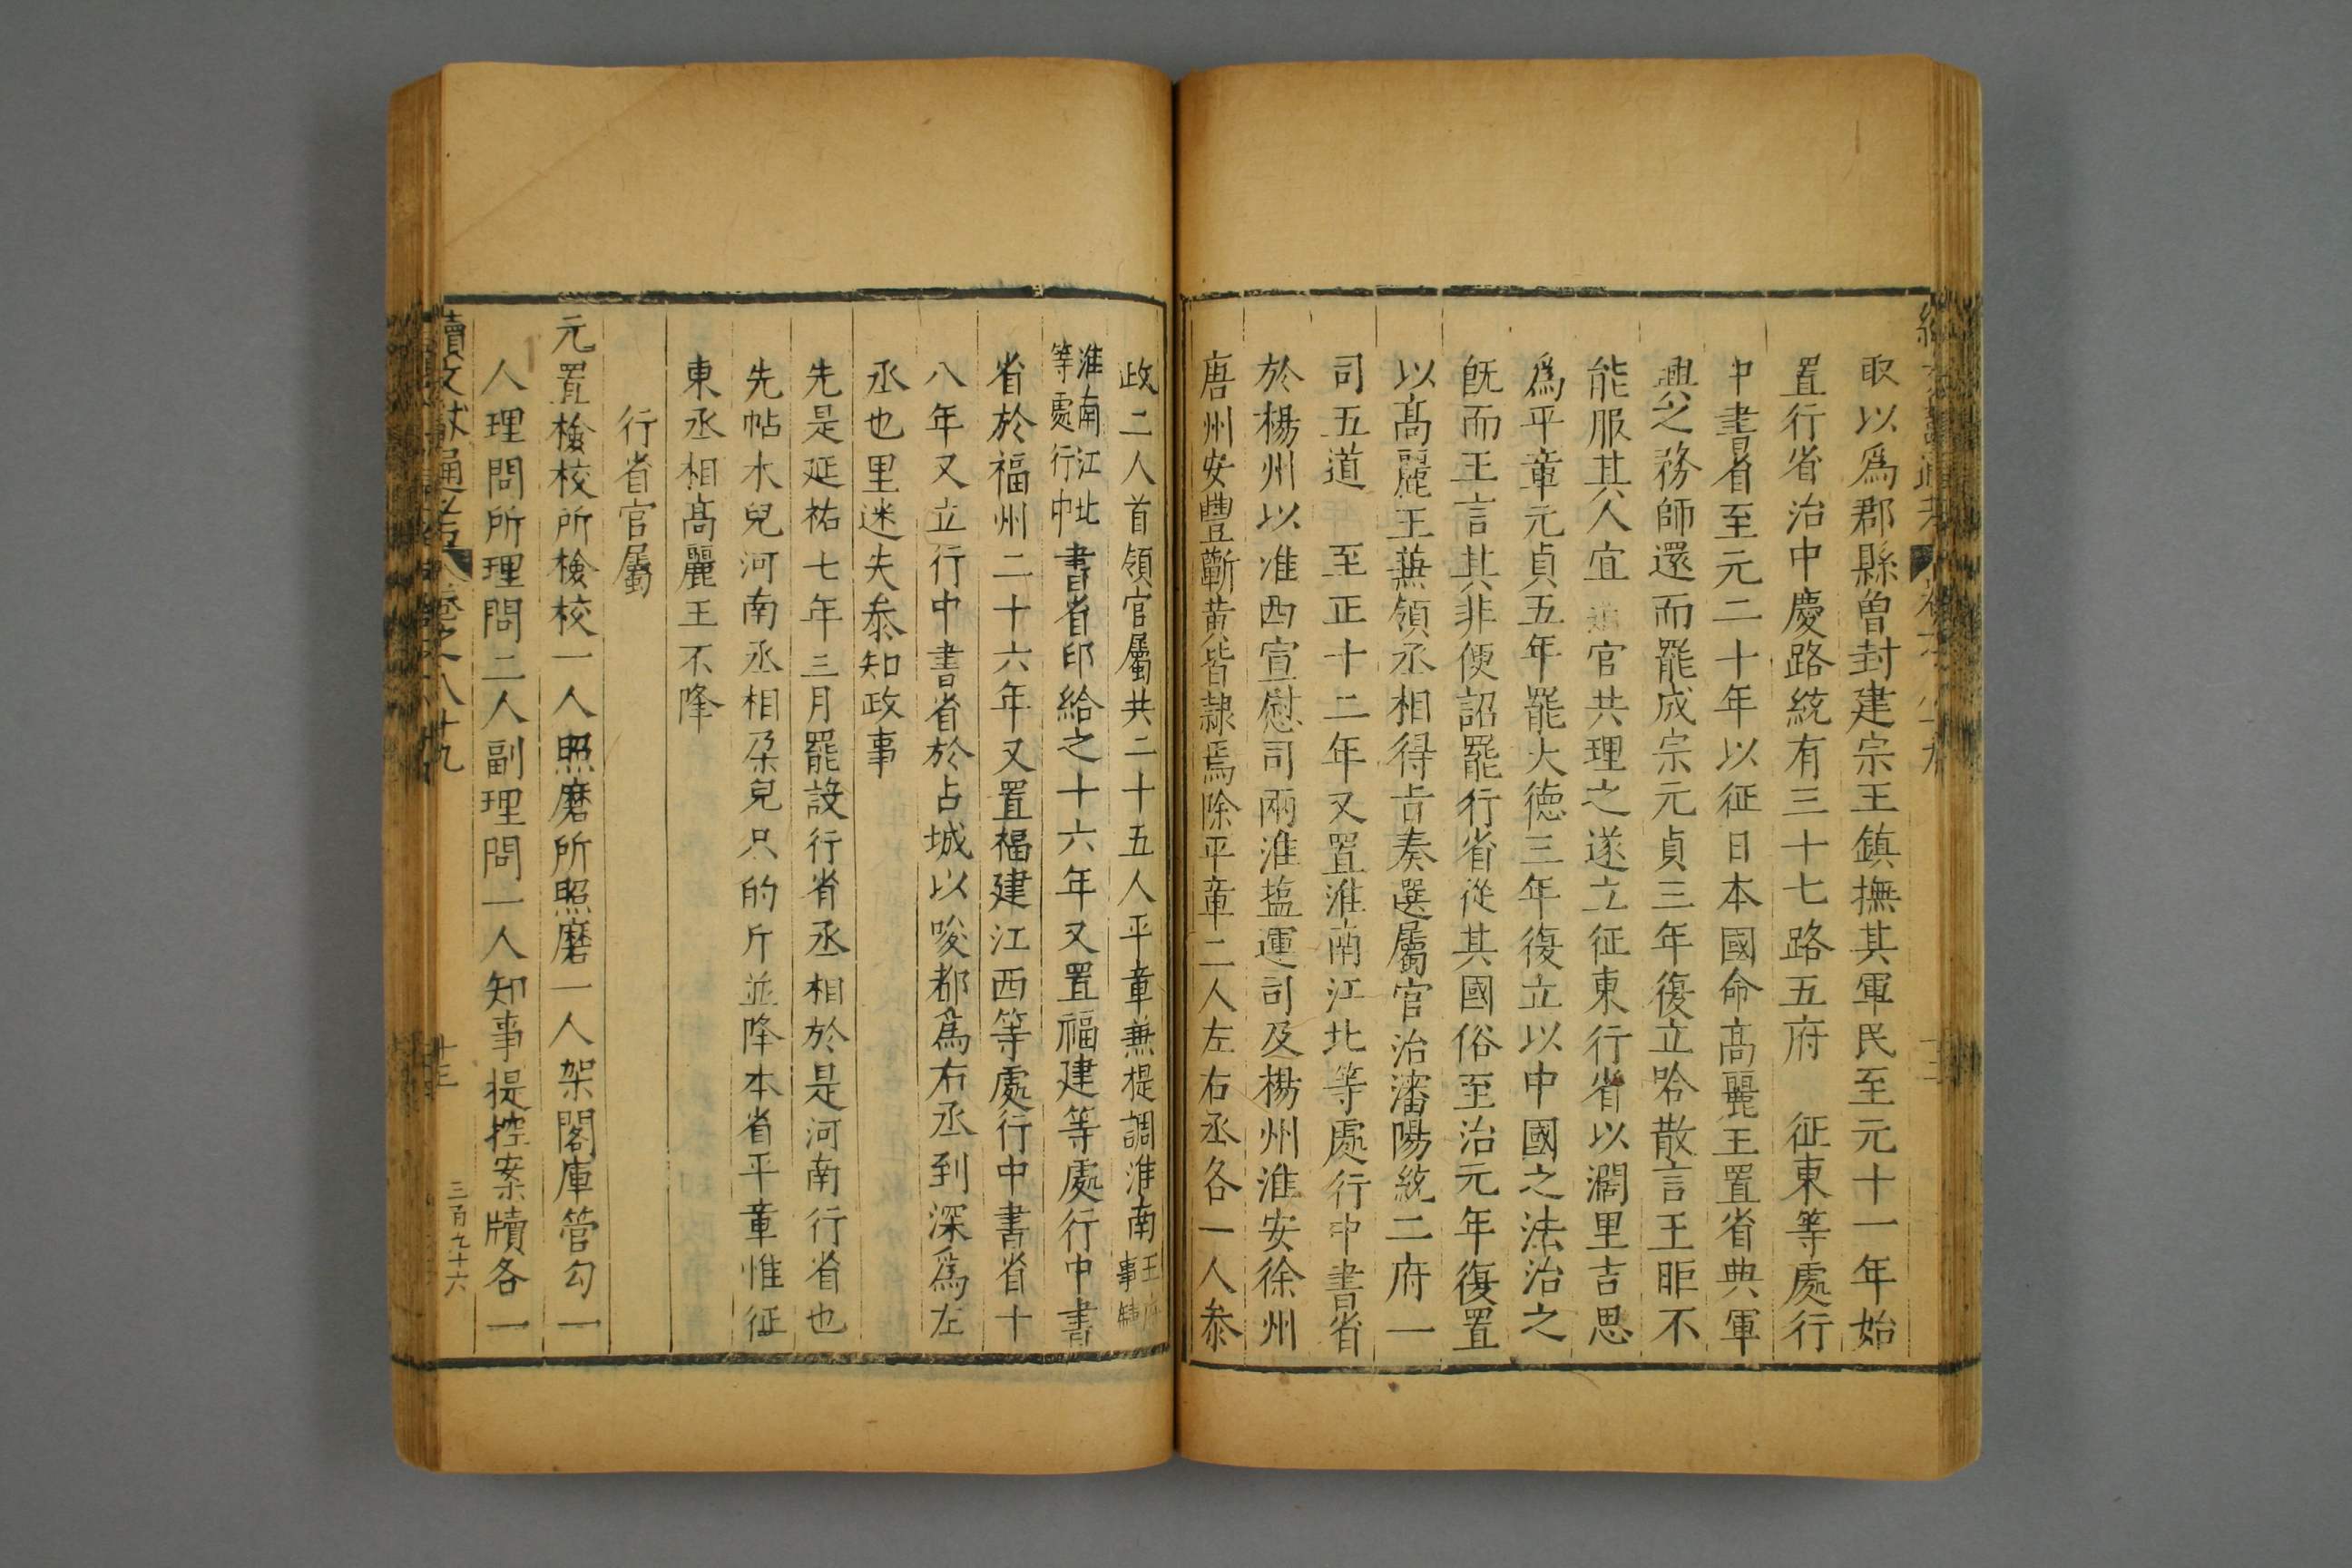 取以爲郡縣曽封建宗王鎮撫其軍民至元十一年始
置行省治中慶路統有三十七路五府　征東等處行
中書省至元二十年以征日本國命髙麗王置省典軍
興之務師還而罷成宗元貞三年復立哈散言王昛不
能服其人宜官共理之遂立征東行省以濶里吉思
爲平章元貞五年罷大徳三年復立以中國之法治之
旣而王言其非便詔罷行省從其國俗至治元年復置
以髙麗王兼領丞相得㫖奏選屬官治瀋陽統二府一
司五道　至正十二年又置淮南江北等處行中書省
於楊州以淮西宣慰司兩淮塩運司及楊州淮安徐州
唐州安豐蘄黄皆隷焉除平章二人左右丞各一人叅
政二人首領官屬共二十五人平章兼提調淮南王府事
淮南江北等處行中書省印給之十六年又置福建等處行中書
省於福州二十六年又置福建江西等處行中書省十
八年又立行中書省於占城以唆都爲右丞劉深爲左
丞也里迷失叅知政事
先是延祐七年三月罷設行省丞相於是河南行省也
先帖木兒河南丞相朶兒只的斤並降本省平章惟征
東丞相髙麗王不降
行省官屬
元置檢校所檢校一人照磨所照磨一人架閣庫管勾一
人理問所理問二人副理問一人知事提控案牘各一
續文獻通考 卷之八十九
十三
三百九十六